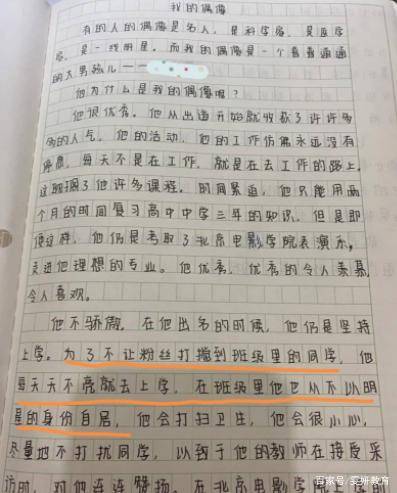 我的偶像
有的人的偶像是名人，是科学家，是医学
家，是一线明星。而我的偶像是一个普普通通
的大男孩儿——
他为什么是我的偶像呢？
他很优秀。他从出道开始就收获了许许多
多的人气。他的活动，他的工作仿佛永远没有
停息，每天不是在工作，就是在去工作的路上。
这耽搁了他许多课程。时间紧迫，他只能用两
个月的时间复习高中中学三年的知识，但是即
使这样，他仍是考取了北京电影学院表演系，
走进他理想的专业。他优秀，优秀的令人羡慕，
令人喜欢。
他不骄傲。在他出名的时候，他仍是坚持
上学。为了不让粉丝打搅到班级里的同学，他
每天天不亮就去上学，在班级里他也从不以明
星的身份自居，他会打扫卫生，他会很小心，
尽量地不打扰同学，以致于他的教师在接受采
访时，对他连连赞扬。在北京电影学院上学的
百家号/雯妍教育